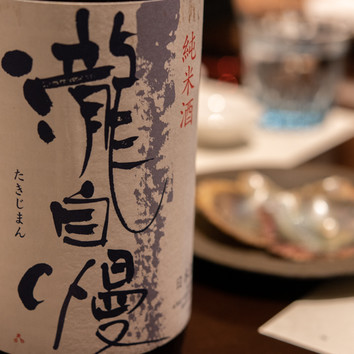 純米酒
瀧自慢
たきじまん